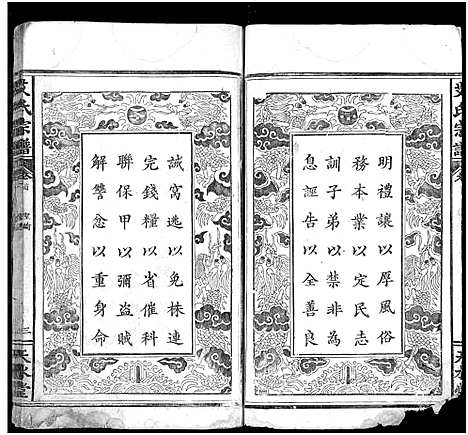 明禮讓以厚風俗
務本業以定民志
訓子弟以禁非為
息誣告以全善良
誡窩逃以免株連
完錢糧以省催科
聯保甲以彌盜賊
解讐忿以重身命
氏宗譜